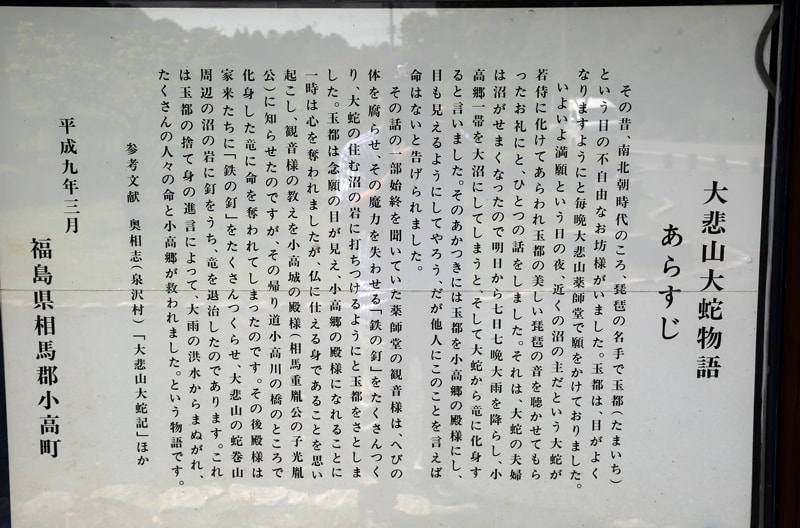 大悲山大蛇物語
あらすじ
その昔、南北朝時代のころ、琵琶の名手で玉都(たまいち)
という目の不自由なお坊様がいました。玉都は、目がよく
なりますようにと毎晩大悲山薬師堂で願をかけておりました。
いよいよ満願という日の夜、近くの沼の主だという大蛇が
若侍に化けてあらわれ玉都の美しい琵琶の音を聴かせてもら
ったお礼にと、ひとつの話をしました。それは、大蛇の夫婦
は沼がせまくなったので明日から七日七晩大雨を降らし、小
高郷一帯を大沼にしてしまうと、そして大蛇から竜に化身す
ると言いました。そのあかつきには玉都を小高郷の殿様にし、
目も見えるようにしてやろう、だが他人にこのことを言えば
命はないと告げられました。
その話の一部始終を聞いていた薬師堂の観音様は、へびの
体を腐らせ、その魔力を失わせる「鉄の釘」をたくさんつく
り、大蛇の住む沼の岩に打ちつけるようにと玉都をさとしま
した。玉都は念願の目が見え、小高郷の殿様になれることに
一時は心を奪われましたが、仏に仕える身であることを思い
起こし、観音様の教えを小高城の殿様(相馬重胤公の子光胤
公)に知らせたのですが、その帰り道小高川の橋のところで
化身した竜に命を奪われてしまったのです。その後殿様は
家来たちに「鉄の釘」をたくさんつくらせ、大悲山の蛇巻山
周辺の沼の岩に釘をうち、竜を退治したのであります。これ
は玉都の捨て身の進言によって、大雨の洪水からまぬがれ、
たくさんの人々の命と小高郷が救われました。という物語です。
参考文献 奥相志(泉沢村)「大悲山大蛇記」ほか
平成九年三月
福島県相馬郡小高町